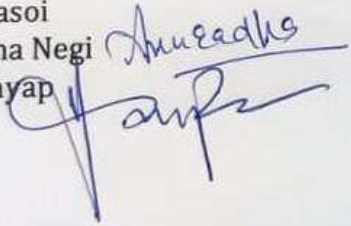 asoi
na Negi Anuradha
yap